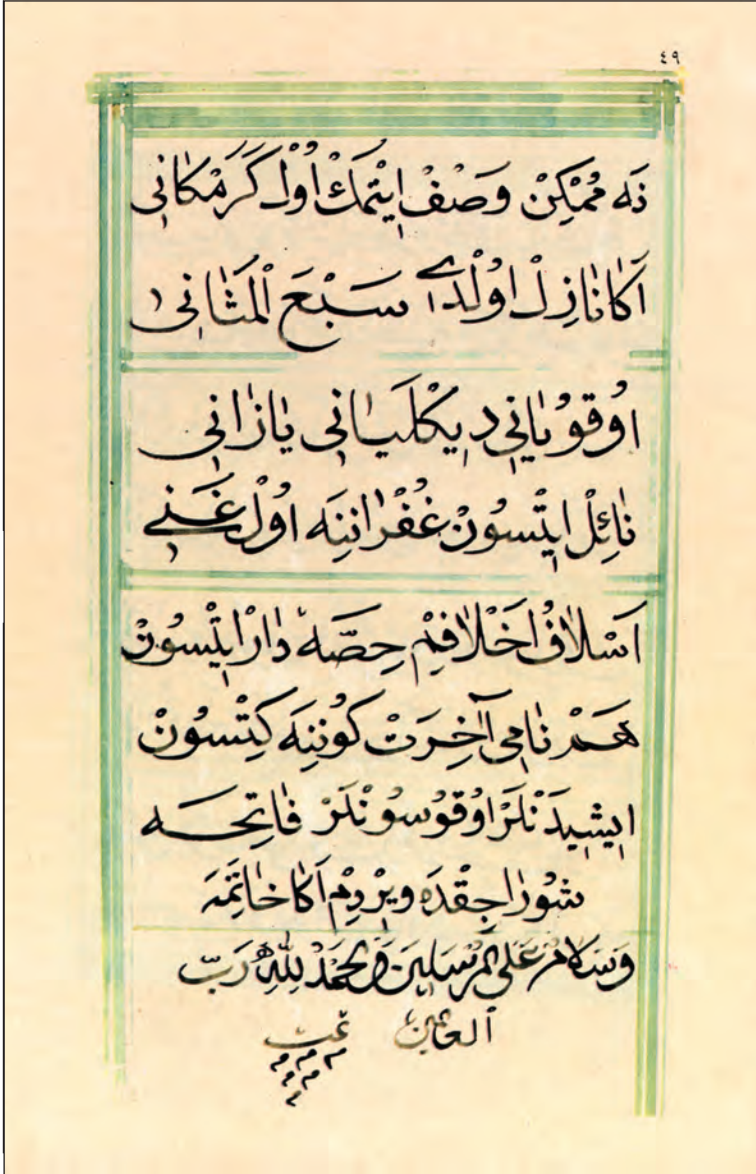 ٤٩
نَه مُمْكِنْ وَصْفْ اِيتْمَكْ اُولْ كَرَمْكَانِى
اَكَا نَازِلْ اُولْدِى سَبْعَ الْمَثَانِى
اُوقُويَانِى دِيكْلَيَانِى يَازَانِى
نَائِلْ اِيتْسُونْ غُفْرَانِنَه اُولْ غَنِى
اَسْلَافْ اَخْلَافِمْ حِصَّه دَارْ اِيتْسُونْ
هَمْ نَامِى آخِرَتْ كُونِنَه كِتْسُونْ
اِيشِيدَنْلَرْ اُوقُوسُونْلَرْ فَاتِحَه
شُورَاجِقْدَه وِيرْدِمْ اَكَا خَاتِمَه
وَسَلَامٌ عَلَى الْمُرْسَلِينَ وَالْحَمْدُ لِلّٰهِ رَبِّ
الْعَالَمِينَ تمت